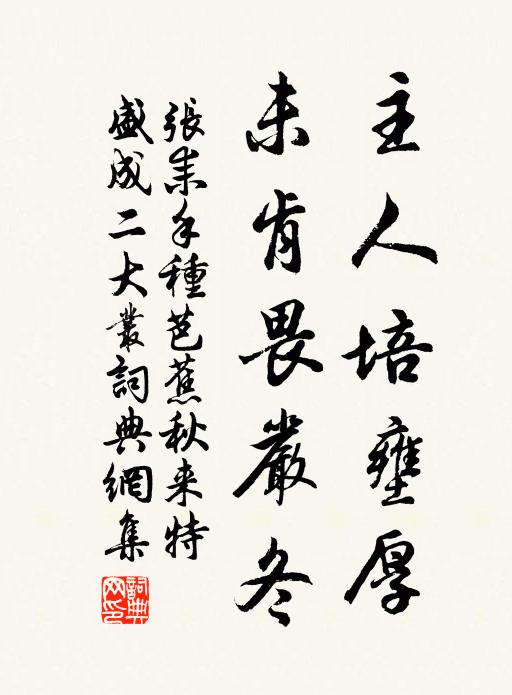 主人培壅厚
未肯畏嚴冬
張耒手種芭蕉秋来特
盛成二大叢詞典網集
詞典網印